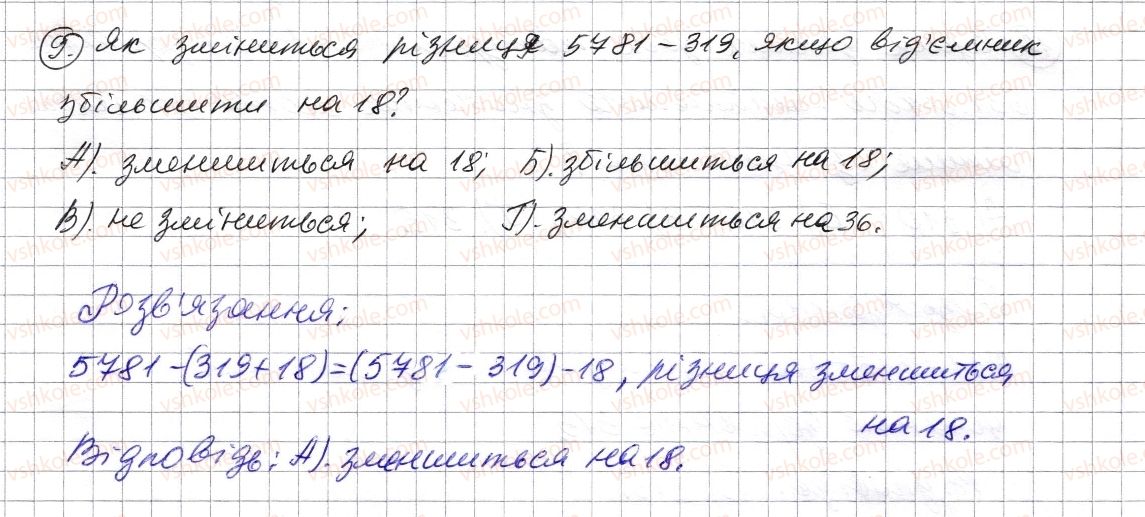 9. Як зміниться різниця 5781 - 319, якщо від'ємник
збільшити на 18?
А). зменшиться на 18; Б). збільшиться на 18;
В). не зміниться; Г). зменшиться на 36.
Розв'язання:
5781 - (319 + 18) = (5781 - 319) - 18, різниця зменшиться
на 18.
Відповідь: А). зменшиться на 18.